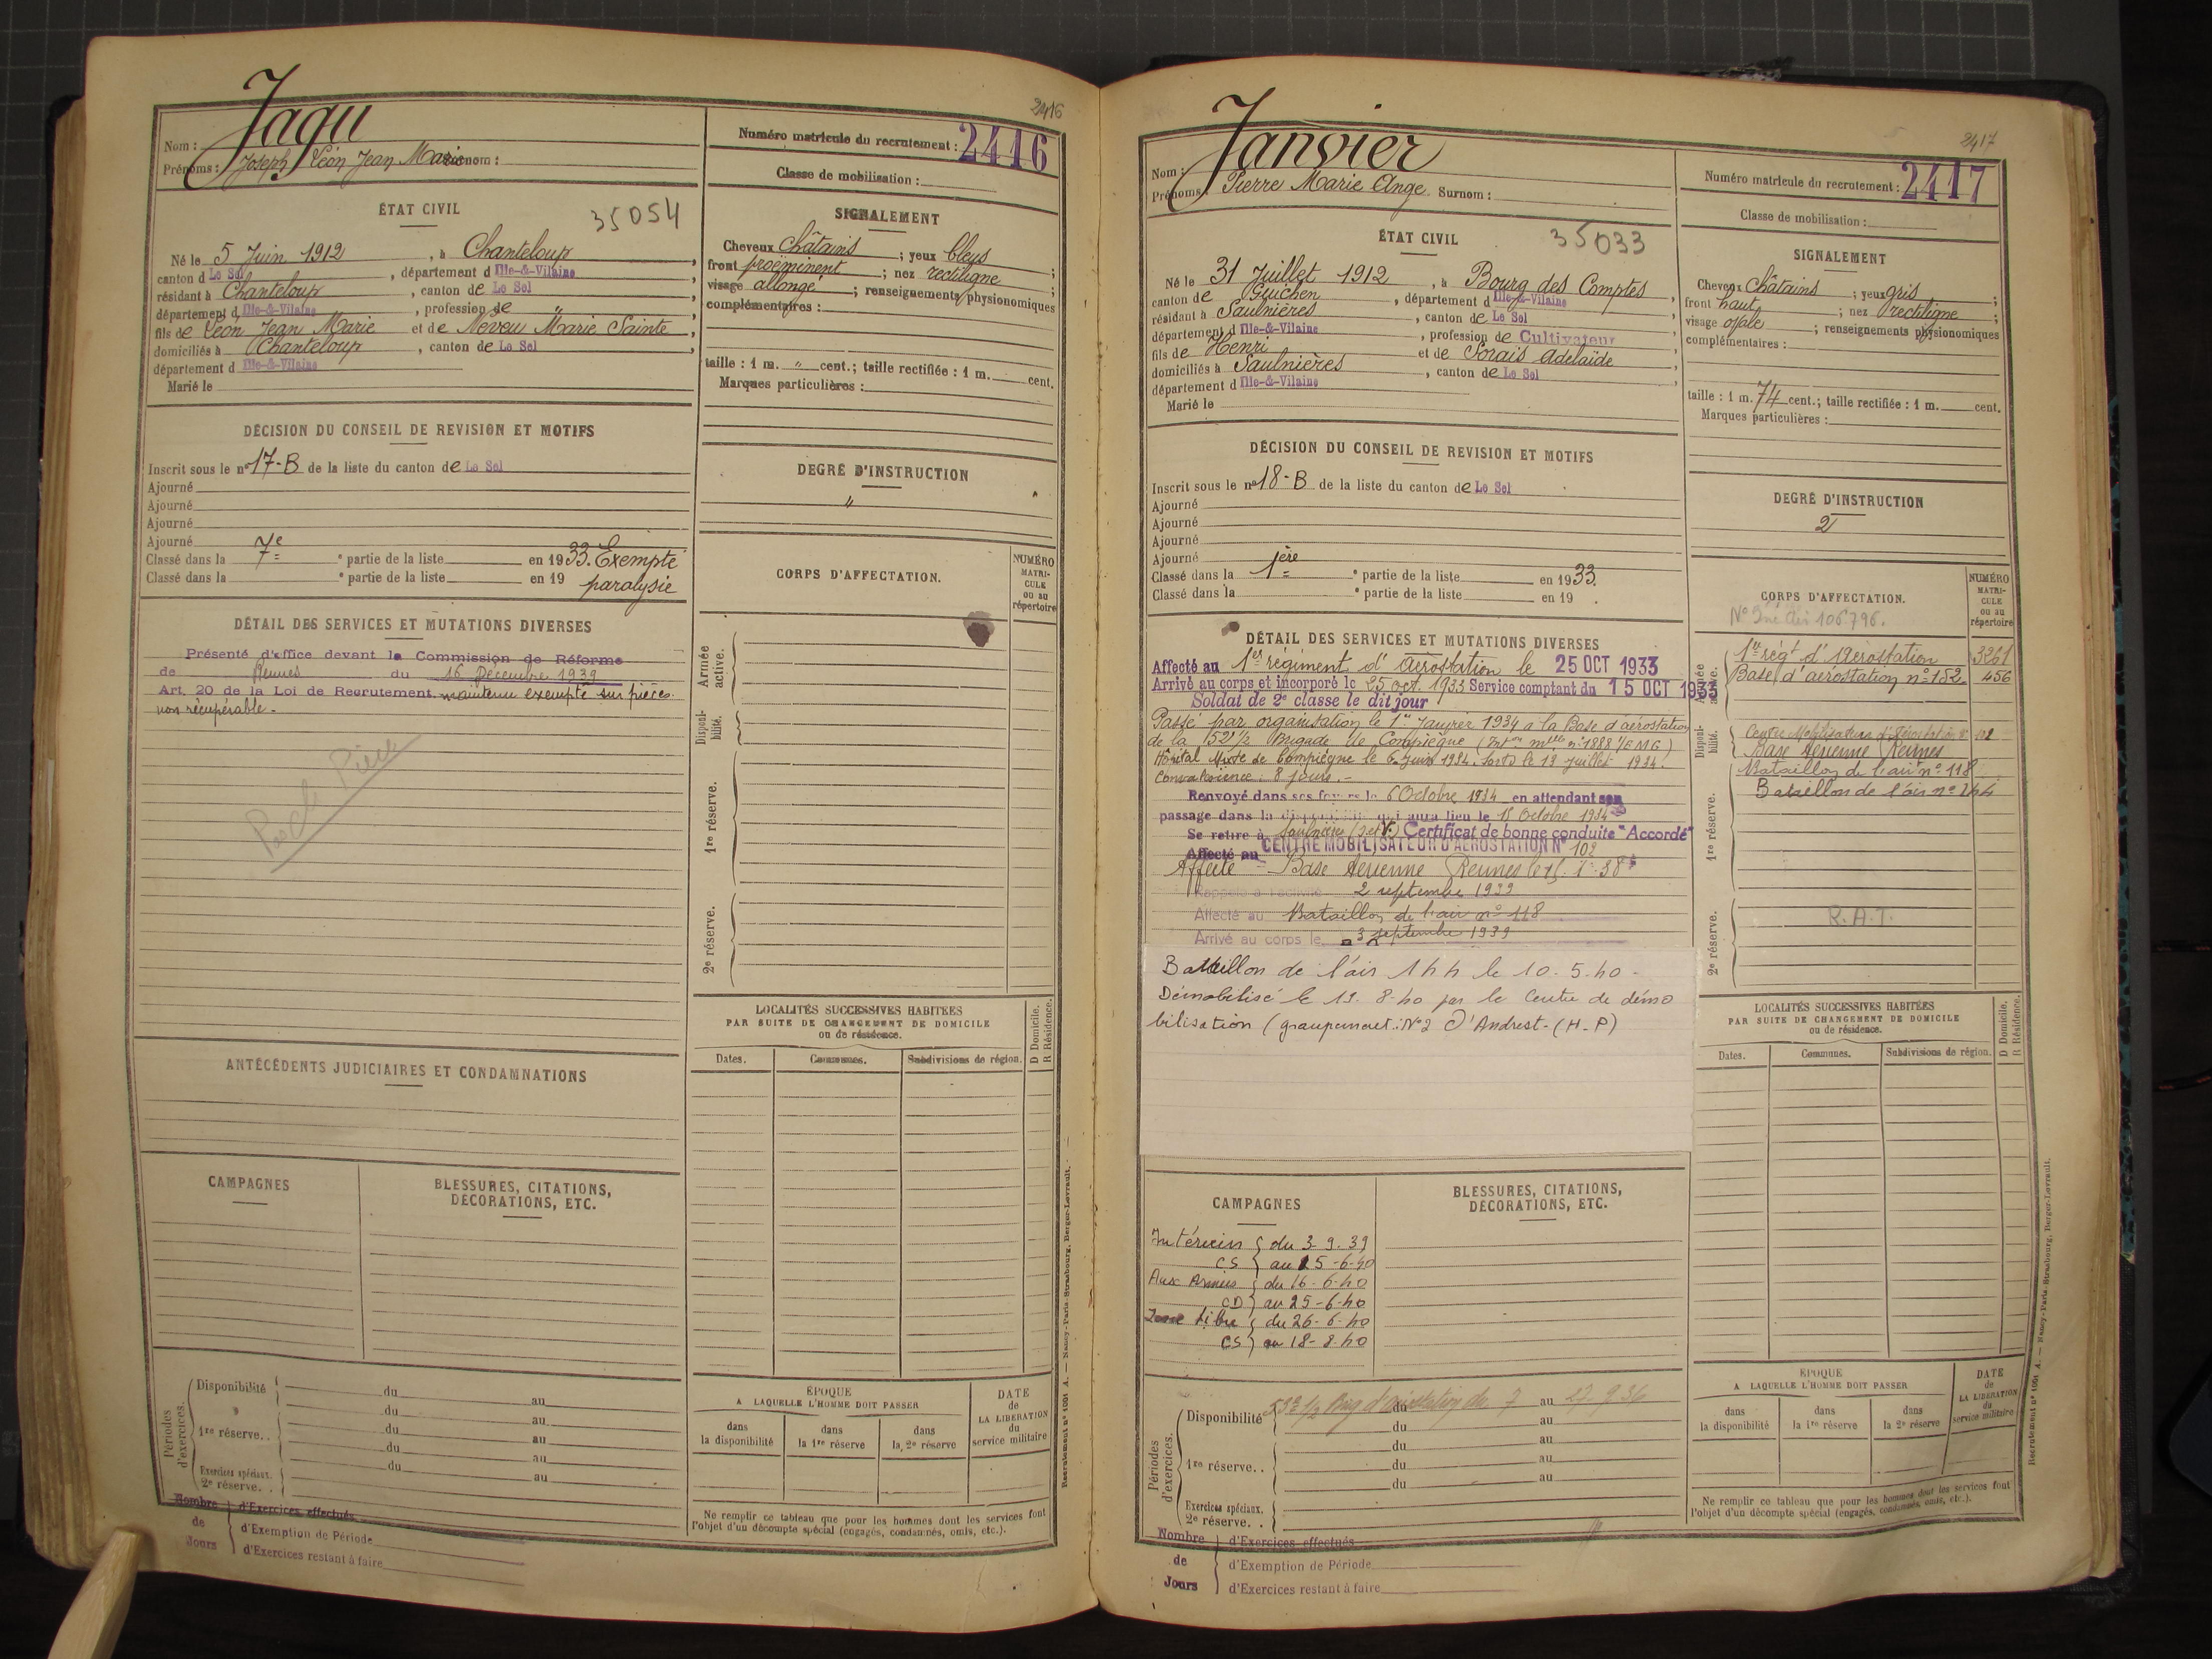 2416
Jagu
Nom :
Prénoms : Joseph Léon Jean Marie Surnom :
Numéro matricule du recrutement : 2416
Classe de mobilisation :
ÉTAT CIVIL
35054
Né le 5 Juin 1912, à Chanteloup,
canton d Le Sel, département d Ille-&-Vilaine
résidant à Chanteloup, canton de Le Sel,
département d Ille-&-Vilaine, profession de "
fils de Léon Jean Marie et de Neveu Marie Sainte,
domiciliés à Chanteloup, canton de Le Sel,
département d Ille-&-Vilaine
Marié le
SIGNALEMENT
Cheveux châtains ; yeux bleus ;
front proëminent ; nez rectiligne ;
visage allongé ; renseignements physionomiques
complémentaires :
taille : 1 m. " cent.; taille rectifiée : 1 m. cent.
Marques particulières :
DÉCISION DU CONSEIL DE REVISION ET MOTIFS
Inscrit sous le n° 17-B de la liste du canton de Le Sel
Ajourné
Ajourné
Ajourné
Ajourné
Classé dans la 7e ° partie de la liste en 1933. Exempté
Classé dans la ° partie de la liste en 19 paralysie
DEGRÉ D'INSTRUCTION
"
CORPS D'AFFECTATION.
NUMÉRO
MATRI-
CULE
ou au
répertoire
DÉTAIL DES SERVICES ET MUTATIONS DIVERSES
Présenté d'office devant la Commission de Réforme
de Rennes du 16 Décembre 1939
Art. 20 de la Loi de Recrutement. maintenu exempté sur pièces.
non récupérable.
Armée
active.
Disponi-
bilité.
1re réserve.
2e réserve.
LOCALITÉS SUCCESSIVES HABITÉES
PAR SUITE DE CHANGEMENT DE DOMICILE
ou de résidence.
D Domicile.
R Résidence.
Dates.
Communes.
Subdivisions de région.
ANTÉCÉDENTS JUDICIAIRES ET CONDAMNATIONS
CAMPAGNES
BLESSURES, CITATIONS,
DÉCORATIONS, ETC.
Périodes
d'exercices.
Disponibilité du au
du au
1re réserve.. du au
du au
Exercices spéciaux. du au
2e réserve. .
Nombre
de
Jours
d'Exercices effectués
d'Exemption de Période
d'Exercices restant à faire
ÉPOQUE
A LAQUELLE L'HOMME DOIT PASSER
dans
la disponibilité
dans
la 1re réserve
dans
la 2e réserve
DATE
de
LA LIBÉRATION
du
service militaire
Ne remplir ce tableau que pour les hommes dont les services font
l'objet d'un décompte spécial (engagés, condamnés, omis, etc.).
Recrutement n° 1051 A. — Nancy-Paris-Strasbourg, Berger-Levrault.
2417
Janvier
Nom :
Prénoms : Pierre Marie Ange Surnom :
Numéro matricule du recrutement : 2417
Classe de mobilisation :
ÉTAT CIVIL
35033
Né le 31 Juillet 1912, à Bourg des Comptes,
canton de Guichen, département d Ille-&-Vilaine
résidant à Saulnières, canton de Le Sel,
département d Ille-&-Vilaine, profession de Cultivateur
fils de Henri et de Sorais Adelaïde,
domiciliés à Saulnières, canton de Le Sel,
département d Ille-&-Vilaine
Marié le
SIGNALEMENT
Cheveux châtains ; yeux gris ;
front haut ; nez rectiligne ;
visage ovale ; renseignements physionomiques
complémentaires :
taille : 1 m. 74 cent.; taille rectifiée : 1 m. cent.
Marques particulières :
DÉCISION DU CONSEIL DE REVISION ET MOTIFS
Inscrit sous le n° 18-B de la liste du canton de Le Sel
Ajourné
Ajourné
Ajourné
Ajourné
Classé dans la 1ère ° partie de la liste en 1933.
Classé dans la ° partie de la liste en 19 .
DEGRÉ D'INSTRUCTION
2
CORPS D'AFFECTATION.
106796.
NUMÉRO
MATRI-
CULE
ou au
répertoire
DÉTAIL DES SERVICES ET MUTATIONS DIVERSES
Affecté au 1er régiment d'aérostation le 25 OCT 1933
Arrivé au corps et incorporé le 25 oct. 1933 Service comptant du 15 OCT 1933
Soldat de 2e classe le dit jour
Passé par organisation le 1er Janvier 1934 a la Base d'aérostation
de la 152 1/2 Brigade de Compiègne (Inton mlle n° 1888 1/EMG)
Hôpital Mixte de Compiègne le 6 Juin 1934. Sorti le 13 Juillet 1934.
Convalescence : 8 jours.-
Renvoyé dans ses foyers le 6 Octobre 1934 en attendant son
passage dans la disponibilité qui aura lieu le 15 Octobre 1934
Se retire à Saulnières (I et V.) Certificat de bonne conduite "Accordé"
Affecté au CENTRE MOBILISATEUR D'AÉROSTATION N° 102
Affecté Base Aérienne Rennes le 15.1.38
Rappelé à l'activité 2 septembre 1939
Affecté au Bataillon de l'air n° 118
Arrivé au corps le 3 septembre 1939
Bataillon de l'air 144 le 10.5.40-
Démobilisé le 19.8.40 par le Centre de démo
bilisation (groupement : N°2 D'Andrest-(H-P)
Armée
active.
1er régt d'Aérostation 3261
Base d'aérostation n° 152. 456
Disponi-
bilité.
Centre Mobilisateur d'Aérostation n° 102
Base Aérienne Rennes
1re réserve.
Bataillon de l'air n° 118
Bataillon de l'air n° 144
2e réserve.
R.A.T.
LOCALITÉS SUCCESSIVES HABITÉES
PAR SUITE DE CHANGEMENT DE DOMICILE
ou de résidence.
D Domicile.
R Résidence.
Dates.
Communes.
Subdivisions de région.
CAMPAGNES
Intérieur du 3.9.39
CS au 15-6-40
Aux Armées du 16-6-40
CD au 25-6-40
Zone libre du 26-6-40
CS au 18-8-40
BLESSURES, CITATIONS,
DÉCORATIONS, ETC.
Périodes
d'exercices.
Disponibilité du 7 au 27 9 36
du au
du au
1re réserve.. du au
du au
Exercices spéciaux.
2e réserve. .
Nombre
de
Jours
d'Exercices effectués
d'Exemption de Période
d'Exercices restant à faire
ÉPOQUE
A LAQUELLE L'HOMME DOIT PASSER
dans
la disponibilité
dans
la 1re réserve
dans
la 2e réserve
DATE
de
LA LIBÉRATION
du
service militaire
Ne remplir ce tableau que pour les hommes dont les services font
l'objet d'un décompte spécial (engagés, condamnés, omis, etc.).
Recrutement n° 1051 A. — Nancy-Paris-Strasbourg, Berger-Levrault.